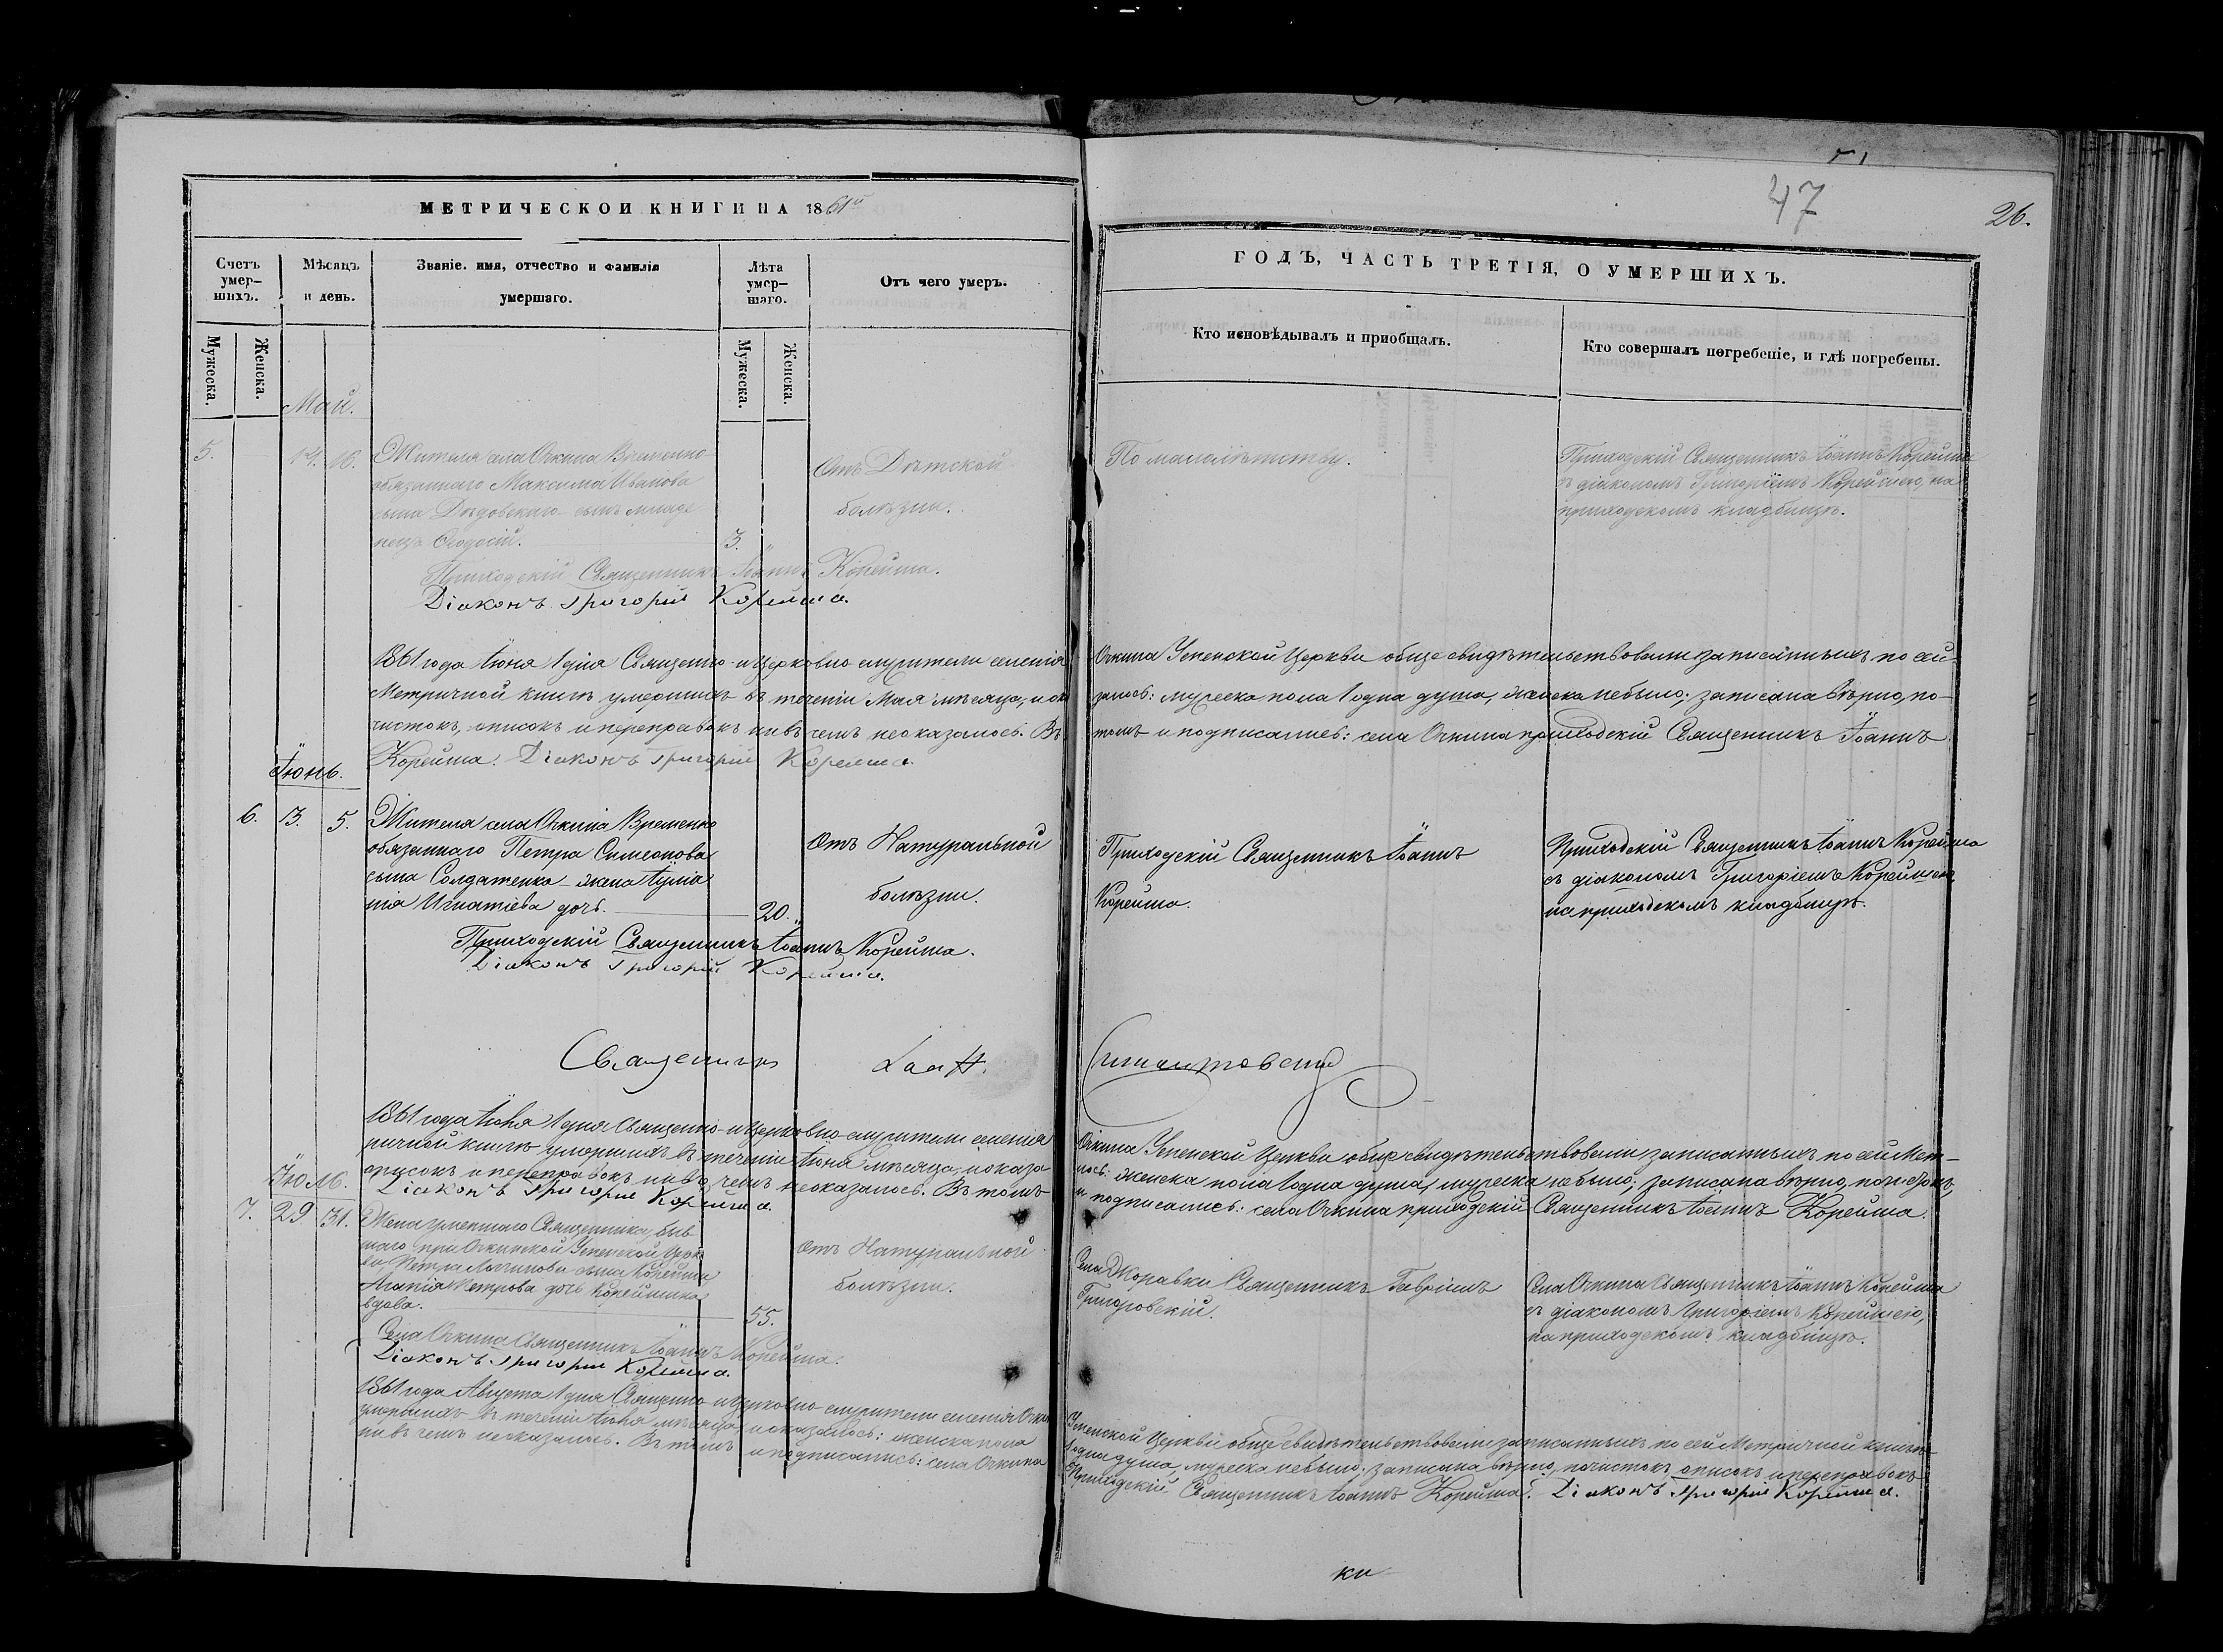 МЕТРИЧЕСКОЙ КНИГИ НА 1861й
Счетъ умер-шихъ.
Мѣсяцъ и день.
Званіе. имя, отчество и фамилія умершаго.
Лѣта умер-шаго.
Отъ чего умеръ.
Мужеска.
Женска.
Мужеска.
Женска.
Май.
5. 14. 16.
Жителя села Очкина Временно-
обязаннаго Максима Иванова
сына Дѣдовскаго сынъ младе
нецъ Ѳеодосій. 3.
Отъ Дѣтской
болѣзни.
Приходскій Священникъ Іоаннъ Корейша.
Діаконъ Григорій Корейша.
1861 года Іюня 1 дня Священно-и Церковно служители селенія
Метричной книгѣ умершихъ въ теченіи Мая мѣсяца, и ока
чистокъ, описокъ и переправокъ ни въ чемъ неоказалось. Въ
Корейша. Діаконъ Григорій Корейша.
Іюнь.
6. 3. 5.
Жителя села Очкина Временно
обязаннаго Петра Симеонова
сына Солдатенка жена Іуліа
нія Игнатіева дочь. 20.
Отъ Натуральной
болѣзни.
Приходскій Священникъ Іоаннъ Корейша.
Діаконъ Григорій Корейша.
Священникъ
1861 года Іюля 1 дня Священно-и Церковно-служители селенія
ричной книгѣ умершихъ въ теченіи Іюня мѣсяца, и оказа
описокъ и переправокъ ни въ чемъ неоказалось. Въ томъ
Діаконъ Григорій Корейша.
Іюль.
7. 29 31.
Жена умершаго Священника, быв
шаго при Очкинской Успенской Церк
ви, Петра сына Корейши
Агапія Петрова дочь Корейшина
вдова. 55.
Отъ Натуральной
болѣзни.
Села Очкина Священникъ Іоаннъ Корейша.
Діаконъ Григорій Корейша.
1861 года Августа 1 дня Священно-и Церковно-служители селенія Очки
умершихъ въ теченіи Іюля мѣсяца, и оказалось: женска пола
ни въ чемъ неоказалось. Въ томъ и подписались: села Очкина
47
26.
ГОДЪ, ЧАСТЬ ТРЕТІЯ, О УМЕРШИХЪ.
Кто исповѣдывалъ и пріобщалъ.
Кто совершалъ погребеніе, и гдѣ погребены.
По малолѣтству.
Приходскій Священникъ Іоаннъ Корейша
съ діакономъ Григоріемъ Корейшею, на
приходскомъ кладбищѣ.
Очкина Успенской Церкви обще свидѣтельствовали записанныхъ по сей
залось: мужеска пола 1 одна душа, женска небыло; записана вѣрно, по-
томъ и подписались: села Очкина приходскій Священникъ Іоаннъ
Приходскій Священникъ Іоаннъ
Корейша.
Приходскій Священникъ Іоаннъ Корейша
съ діакономъ Григоріемъ Корейшею,
на приходскомъ кладбищѣ.
Очкина Успенской Церкви обще свидѣтельствовали записанныхъ по сей Мет-
лось: женска пола 1 одна душа, мужеска небыло; записана вѣрно, почистокъ,
и подписались: села Очкина приходскій Священникъ Іоаннъ Корейша.
Села Журавки Священникъ Гавріилъ
Григоровскій.
Села Очкина Священникъ Іоаннъ Корейша
съ діакономъ Григоріемъ Корейшею,
на приходскомъ кладбищѣ.
Успенской Церкви обще свидѣтельствовали записанныхъ по сей Метричной книгѣ
1 одна душа, мужеска небыло; записана вѣрно, почистокъ описокъ и переправокъ
Приходскій Священникъ Іоаннъ Корейша. Діаконъ Григорій Корейша.